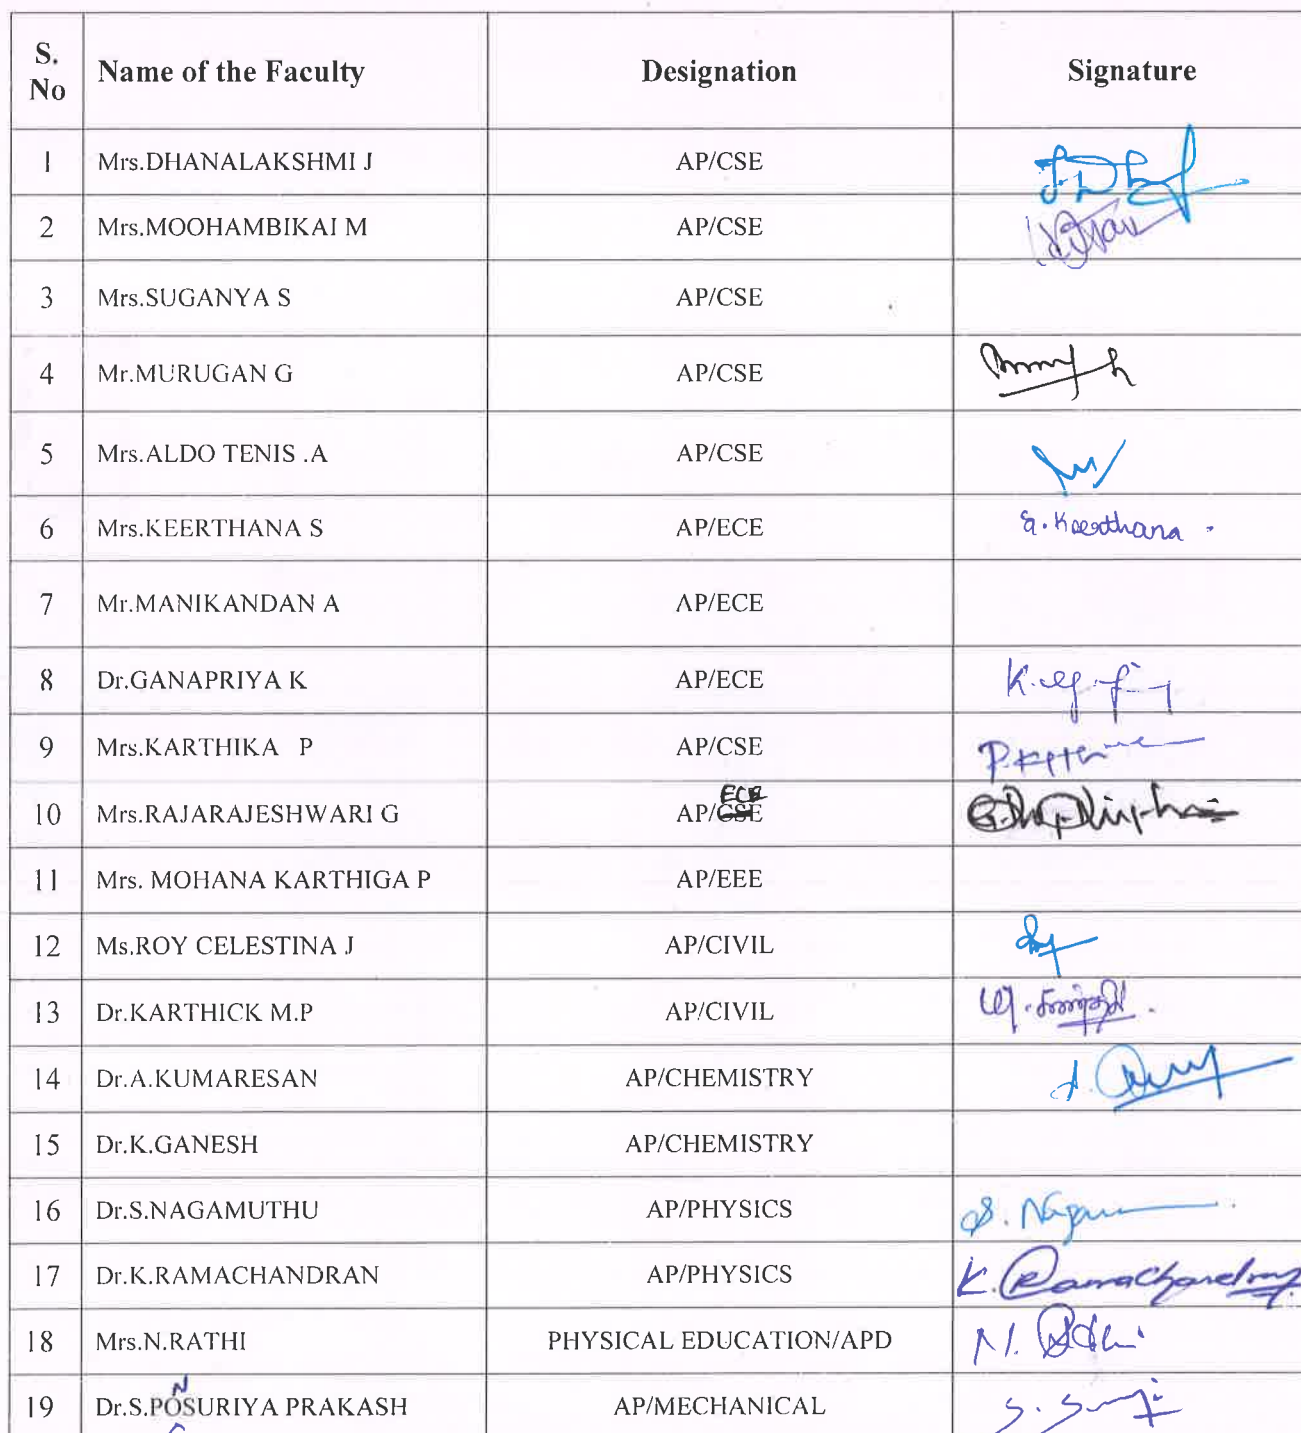 S. No Name of the Faculty Designation Signature
1 Mrs.DHANALAKSHMI J AP/CSE
2 Mrs.MOOHAMBIKAI M AP/CSE
3 Mrs.SUGANYA S AP/CSE
4 Mr.MURUGAN G AP/CSE
5 Mrs.ALDO TENIS .A AP/CSE
6 Mrs.KEERTHANA S AP/ECE S. Keerthana
7 Mr.MANIKANDAN A AP/ECE
8 Dr.GANAPRIYA K AP/ECE
9 Mrs.KARTHIKA P AP/CSE
ECE
10 Mrs.RAJARAJESHWARI G AP/CSE
11 Mrs. MOHANA KARTHIGA P AP/EEE
12 Ms.ROY CELESTINA J AP/CIVIL
13 Dr.KARTHICK M.P AP/CIVIL
14 Dr.A.KUMARESAN AP/CHEMISTRY
15 Dr.K.GANESH AP/CHEMISTRY
16 Dr.S.NAGAMUTHU AP/PHYSICS
17 Dr.K.RAMACHANDRAN AP/PHYSICS K. Ramachandran
18 Mrs.N.RATHI PHYSICAL EDUCATION/APD N. Rathi
N
19 Dr.S.POSURIYA PRAKASH AP/MECHANICAL